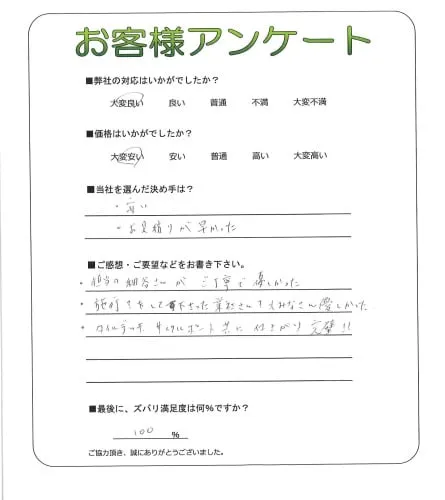 お客様アンケート
■弊社の対応はいかがでしたか？
大変良い 良い 普通 不満 大変不満
■価格はいかがでしたか？
大変安い 安い 普通 高い 大変高い
■当社を選んだ決め手は？
・安い
・お見積りが早かった
■ご感想・ご要望などをお書き下さい。
・担当の細谷さんがご丁寧で優しかった
・施行をして下さった業社さんもみなさん優しかった
・タイルデッキ サイクルポート共に仕上がり完璧!!
■最後に、ズバリ満足度は何％ですか？
100 ％
ご協力頂き、誠にありがとうございました。